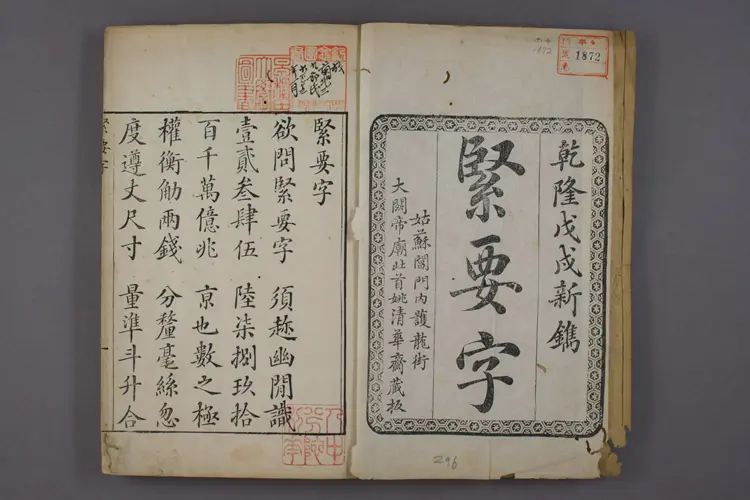 乾隆戊戌新鐫
緊要字
姑蘇閶門内護龍街
大關帝廟北首姚清華齋藏板
1872
1872
296
緊要字
欲問緊要字 須趂幽閒識
壹貳叁肆伍 陸柒捌玖拾
百千萬億兆 京也數之極
權衡觔兩錢 分釐毫絲忽
度遵丈尺寸 量準斗升合
緊要字